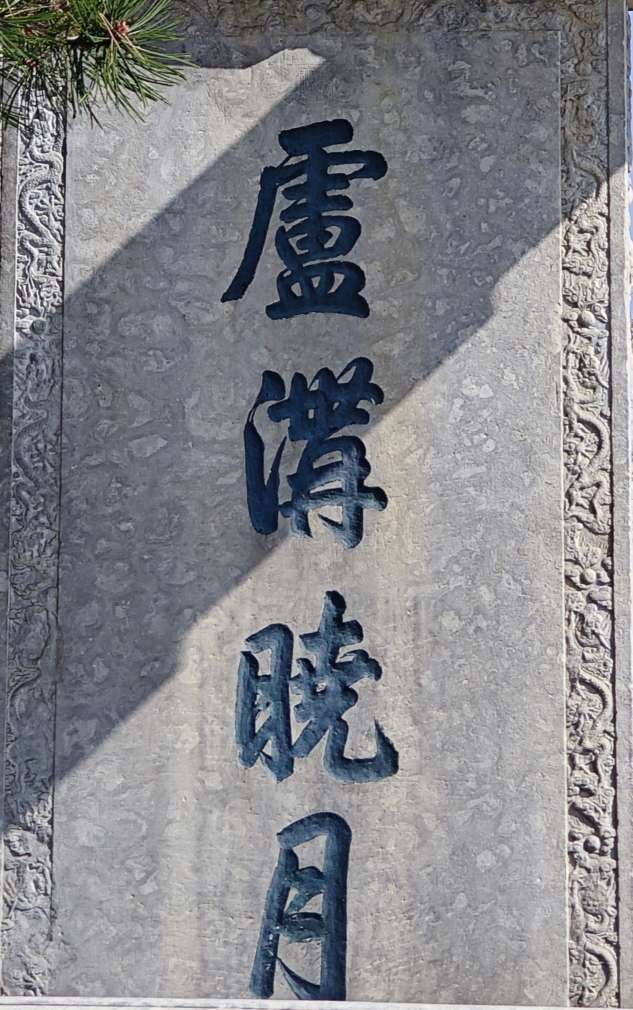 盧溝曉月